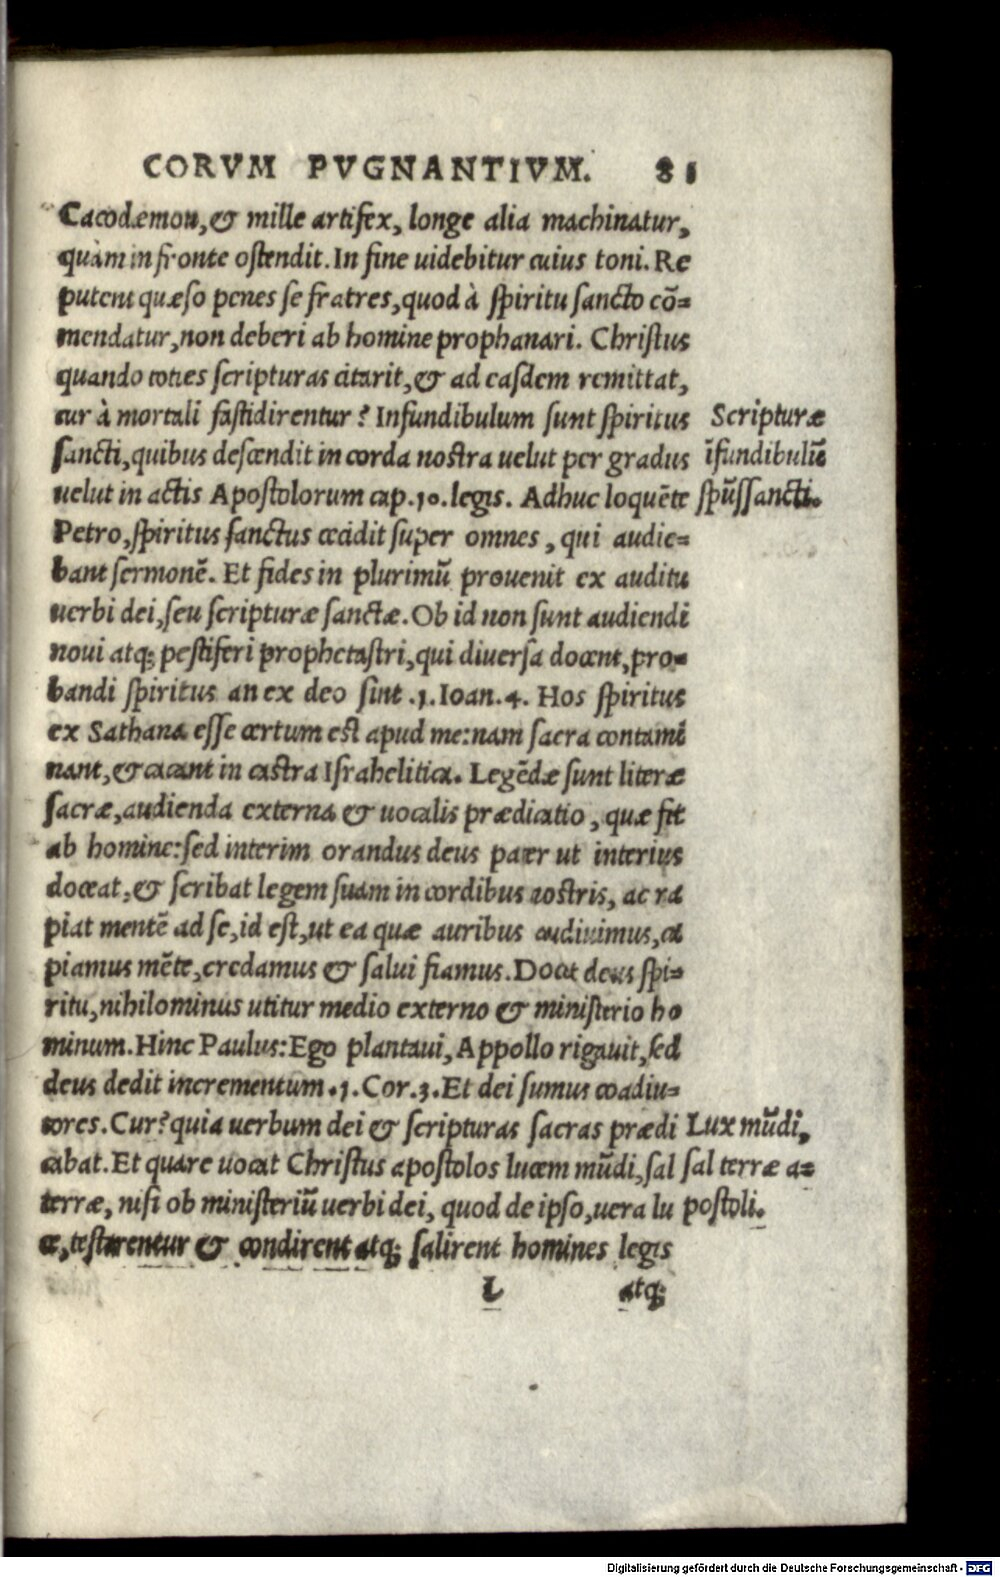 CORVM PVGNANTIVM. 81
Cacodæmon,& mille artifex, longe alia machinatur,
quàm in fronte ostendit. In fine uidebitur cuius toni. Re
putent quæso penes se fratres, quod à spiritu sancto cō=
mendatur, non deberi ab homine prophanari. Christus
quando toties scripturas citarit,& ad easdem remittat,
cur à mortali fastidirentur? Infundibulum sunt spiritus
sancti, quibus descendit in corda nostra uelut per gradus
uelut in actis Apostolorum cap.10.legis. Adhuc loquēte
Petro, spiritus sanctus cecidit super omnes, qui audie=
bant sermonē. Et fides in plurimū prouenit ex auditu
uerbi dei, seu scripturæ sanctæ. Ob id non sunt audiendi
noui atq; pestiferi prophetastri, qui diuersa docent, pro=
bandi spiritus an ex deo sint .1. Ioan. 4. Hos spiritus
ex Sathana esse certum est apud me: nam sacra contami
nant,& cacant in castra Israhelitica. Legēdæ sunt literæ
sacræ, audienda externa & uocalis prædicatio, quæ fit
ab homine: sed interim orandus deus pater ut interius
doceat,& scribat legem suam in cordibus nostris, ac ra
piat mentē ad se, id est, ut ea quæ auribus audiuimus, ca
piamus mēte, credamus & salui fiamus. Docet deus spi=
ritu, nihilominus utitur medio externo & ministerio ho
minum. Hinc Paulus: Ego plantaui, Appollo rigauit, sed
deus dedit incrementum .1. Cor. 3. Et dei sumus coadiu=
tores. Cur? quia uerbum dei & scripturas sacras prædi
cabat. Et quare uocat Christus apostolos lucem mūdi, sal
terræ, nisi ob ministeriū uerbi dei, quod de ipso, uera lu
ce, testarentur & condirent atq; salirent homines legis
L atq;
Scripturæ
īfundibuliū
spūssancti.
Lux mūdi,
sal terræ a=
postoli.
Digitalisierung gefördert durch die Deutsche Forschungsgemeinschaft - DFG